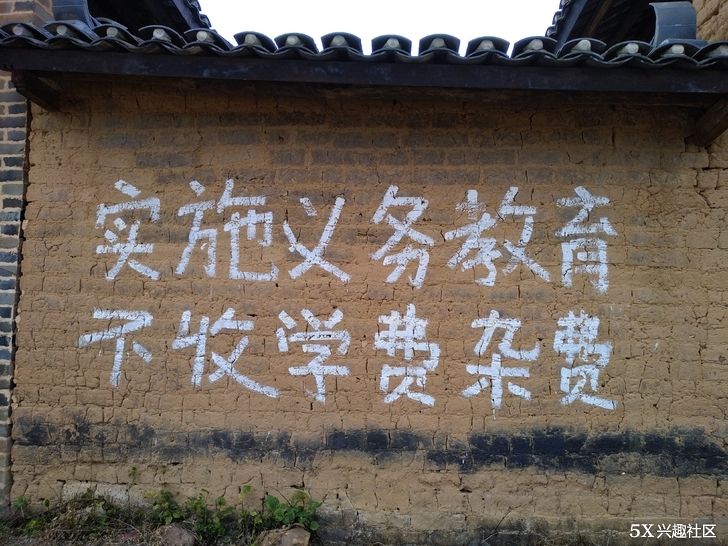 实施义务教育
不收学费杂费
5X兴趣社区